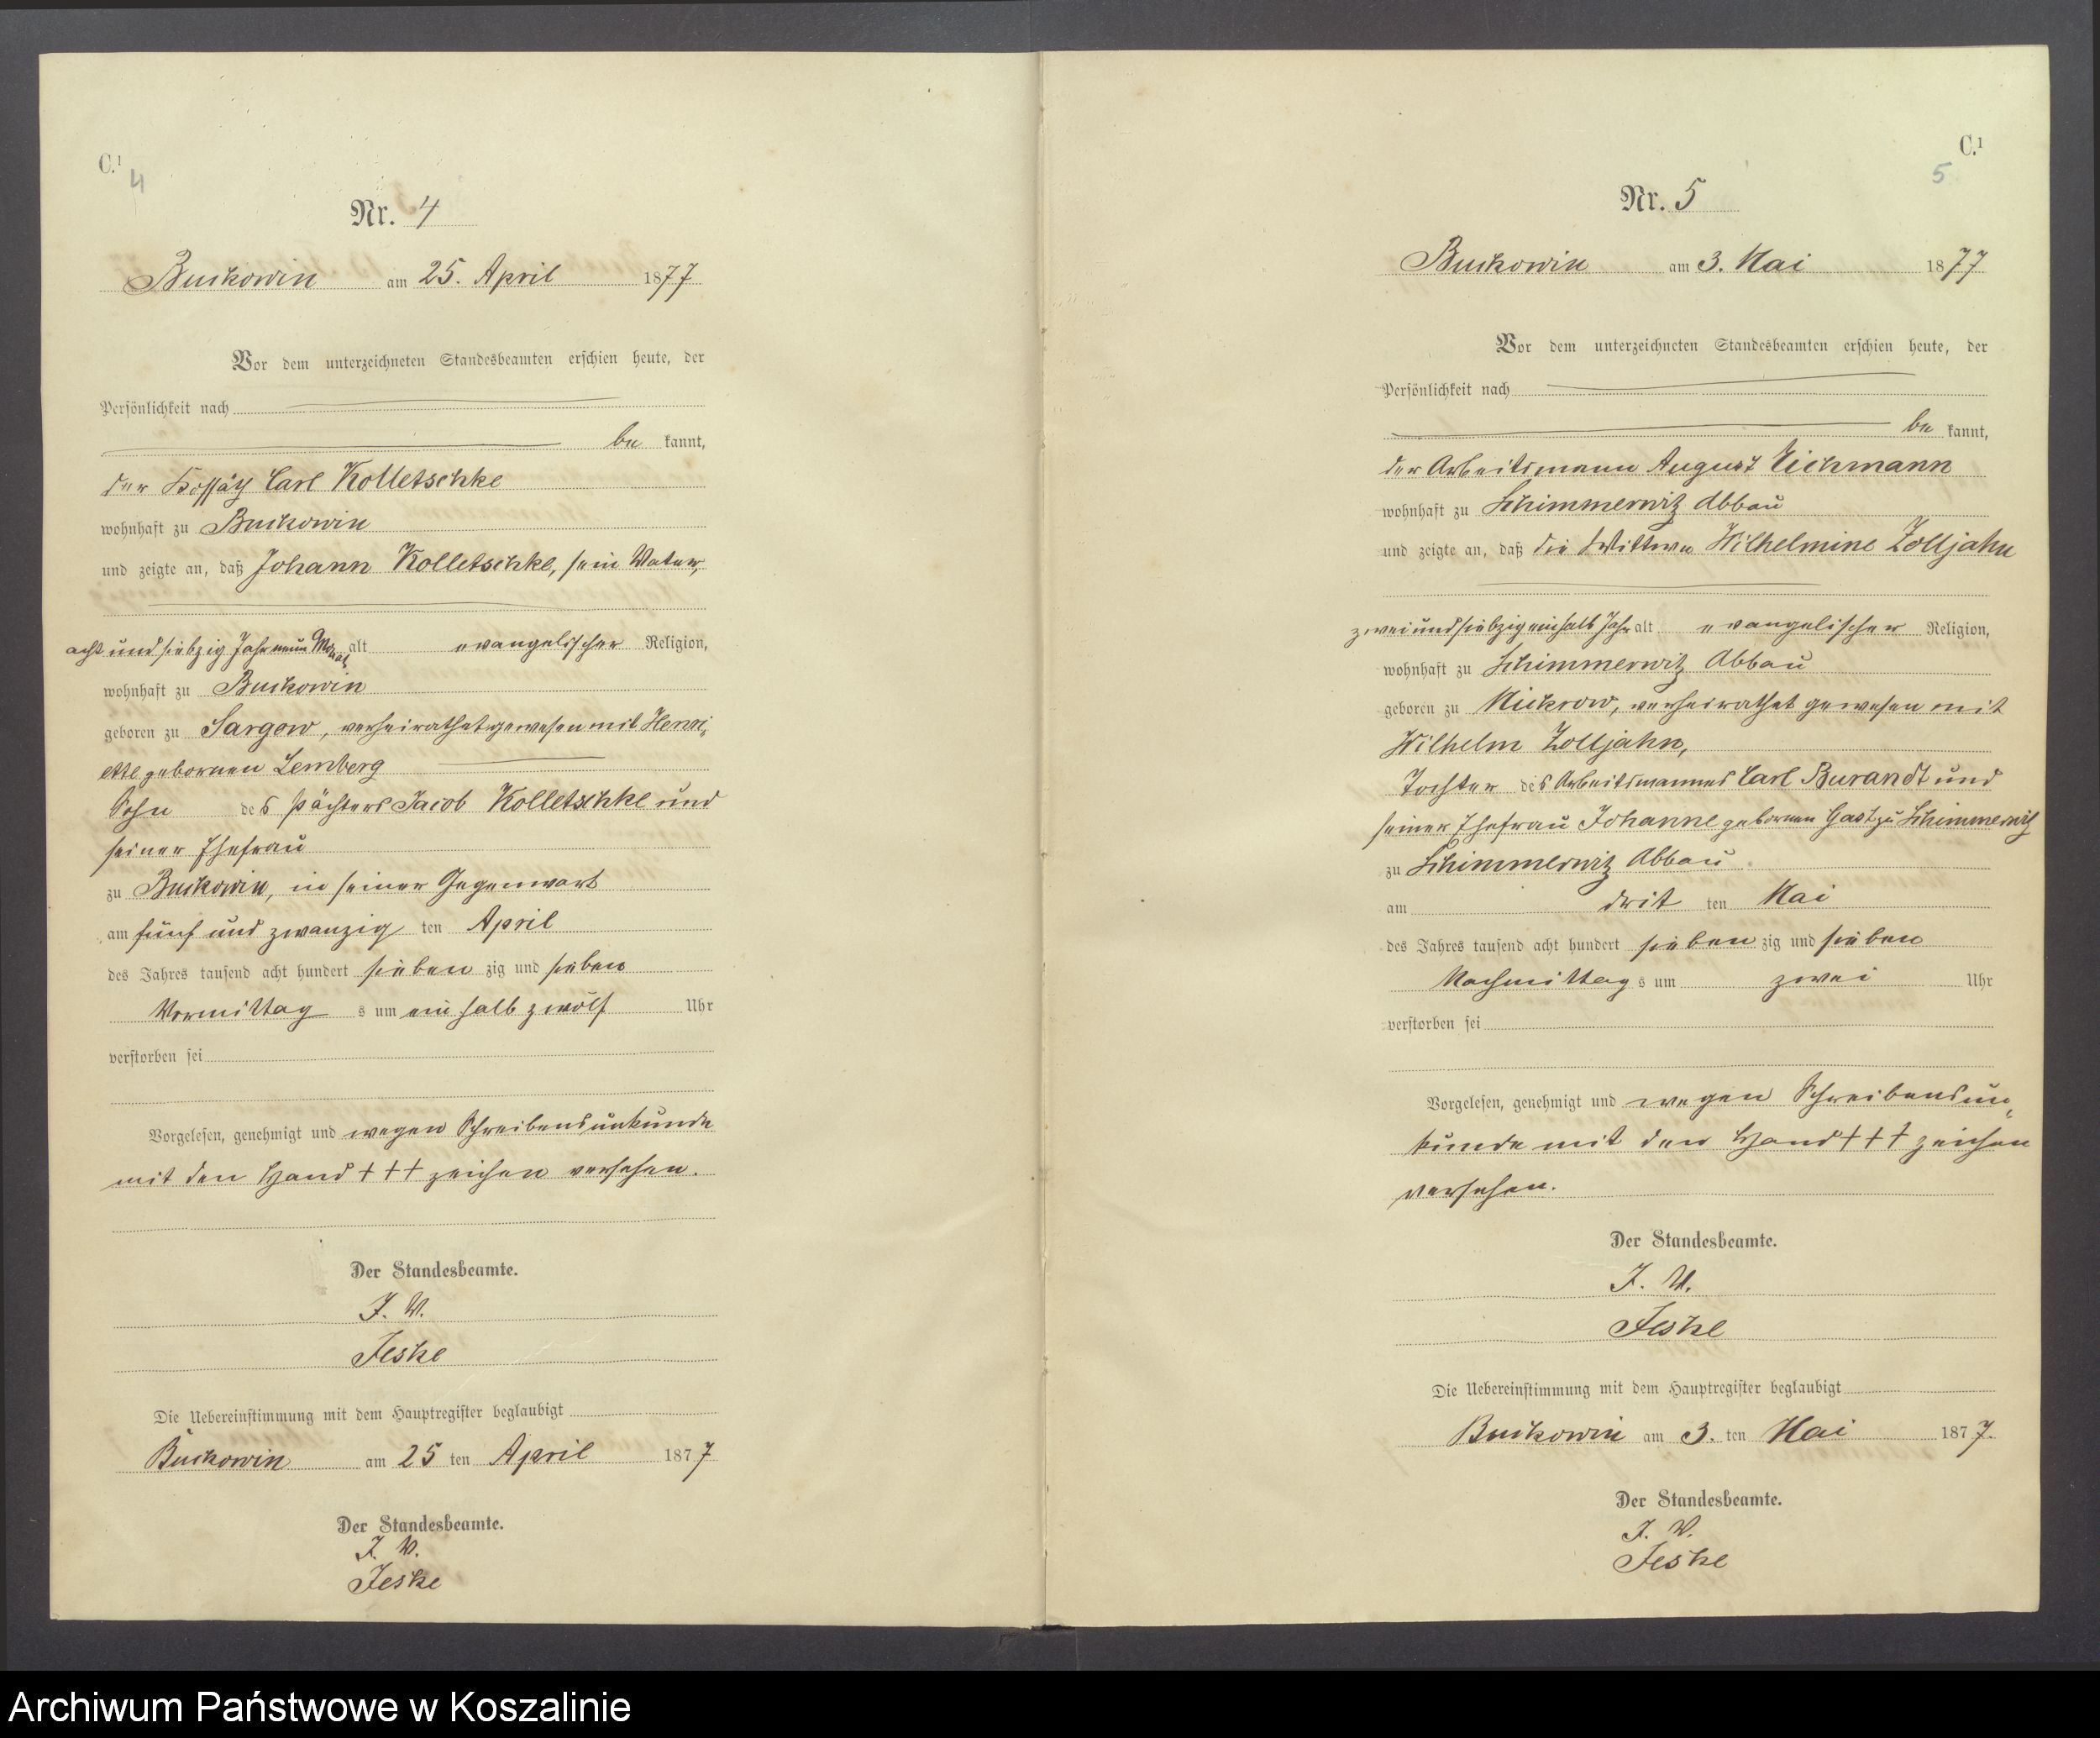 C.¹
4
Nr. 4
Buckowin am 25. April 1877
Vor dem unterzeichneten Standesbeamten erschien heute, der
Persönlichkeit nach
be kannt,
der Kossäth Carl Kolletschke
wohnhaft zu Buckowin
und zeigte an, daß Johann Kolletschke, sein Vater,
acht und siebzig Jahr neun Monat alt evangelischer Religion,
wohnhaft zu Buckowin
geboren zu Sargow, verheirathet gewesen mit Henri-
ette gebornen Lemberg
Sohn des Pächters Jacob Kolletschke und
seiner Ehefrau
zu Buckowin, in seiner Gegenwart
am fünf und zwanzig ten April
des Jahres tausend acht hundert sieben zig und sieben
Vormittag s um ein halb zwölf Uhr
verstorben sei
Vorgelesen, genehmigt und wegen Schreibensunkunde
mit den Hand + + + zeichen versehen.
Der Standesbeamte.
J. V.
Jeske
Die Uebereinstimmung mit dem Hauptregister beglaubigt
Buckowin am 25 ten April 1877
Der Standesbeamte.
J. V.
Jeske
C.¹
5
Nr. 5
Buckowin am 3. Mai 1877
Vor dem unterzeichneten Standesbeamten erschien heute, der
Persönlichkeit nach
be kannt,
der Arbeitsmann August Eichmann
wohnhaft zu Schimmerwitz Abbau
und zeigte an, daß die Wittwe Wilhelmine Zolljahn
zwei und siebzig einhalb Jahr alt evangelischer Religion,
wohnhaft zu Schimmerwitz Abbau
geboren zu Mickrow, verheirathet gewesen mit
Wilhelm Zolljahn,
Tochter des Arbeitsmannes Carl Burandt und
seiner Ehefrau Johanne gebornen Gast zu Schimmerwitz
zu Schimmerwitz Abbau
am drit ten Mai
des Jahres tausend acht hundert sieben zig und sieben
Nachmittag s um zwei Uhr
verstorben sei
Vorgelesen, genehmigt und wegen Schreibensun-
kunde mit den Hand + + + zeichen
versehen.
Der Standesbeamte.
J. V.
Jeske
Die Uebereinstimmung mit dem Hauptregister beglaubigt
Buckowin am 3. ten Mai 1877.
Der Standesbeamte.
J. V.
Jeske
Archiwum Państwowe w Koszalinie